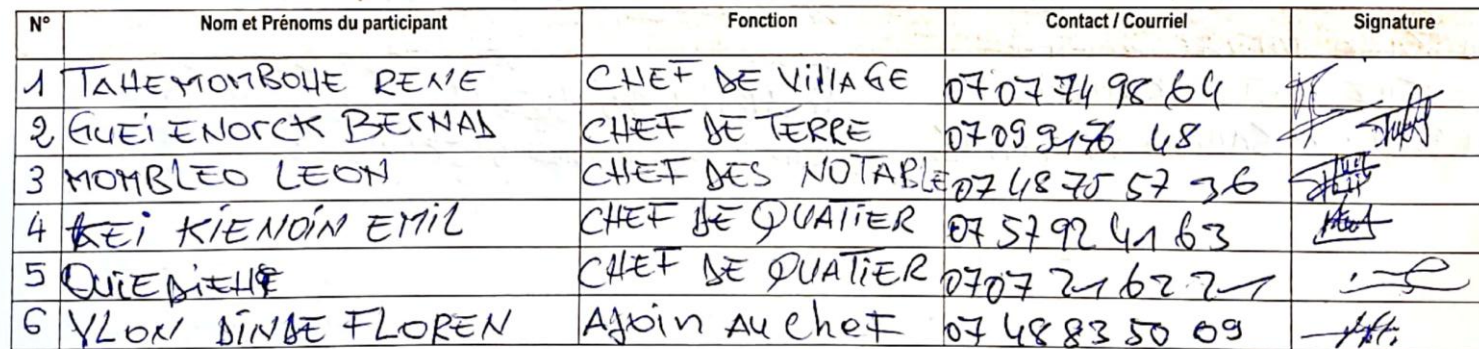 N° Nom et Prénoms du participant Fonction Contact / Courriel Signature
1 TAHEMOMBOHE RENE CHEF DE VillAGE 07 07 74 98 64
2 GUEi ENORCK BERNAD CHEF DE TERRE 07 09 91 76 48
3 MOMBLEO LEON CHEF DES NOTABLE 07 48 75 57 36
4 KEi KIENOiN EMIL CHEF DE QUATiER 07 57 92 41 63
5 OUiEDiEHE CHEF DE QUATiER 07 07 21 62 21
6 YLON DiNDE FLOREN AJOin AU CheF 07 48 83 50 09